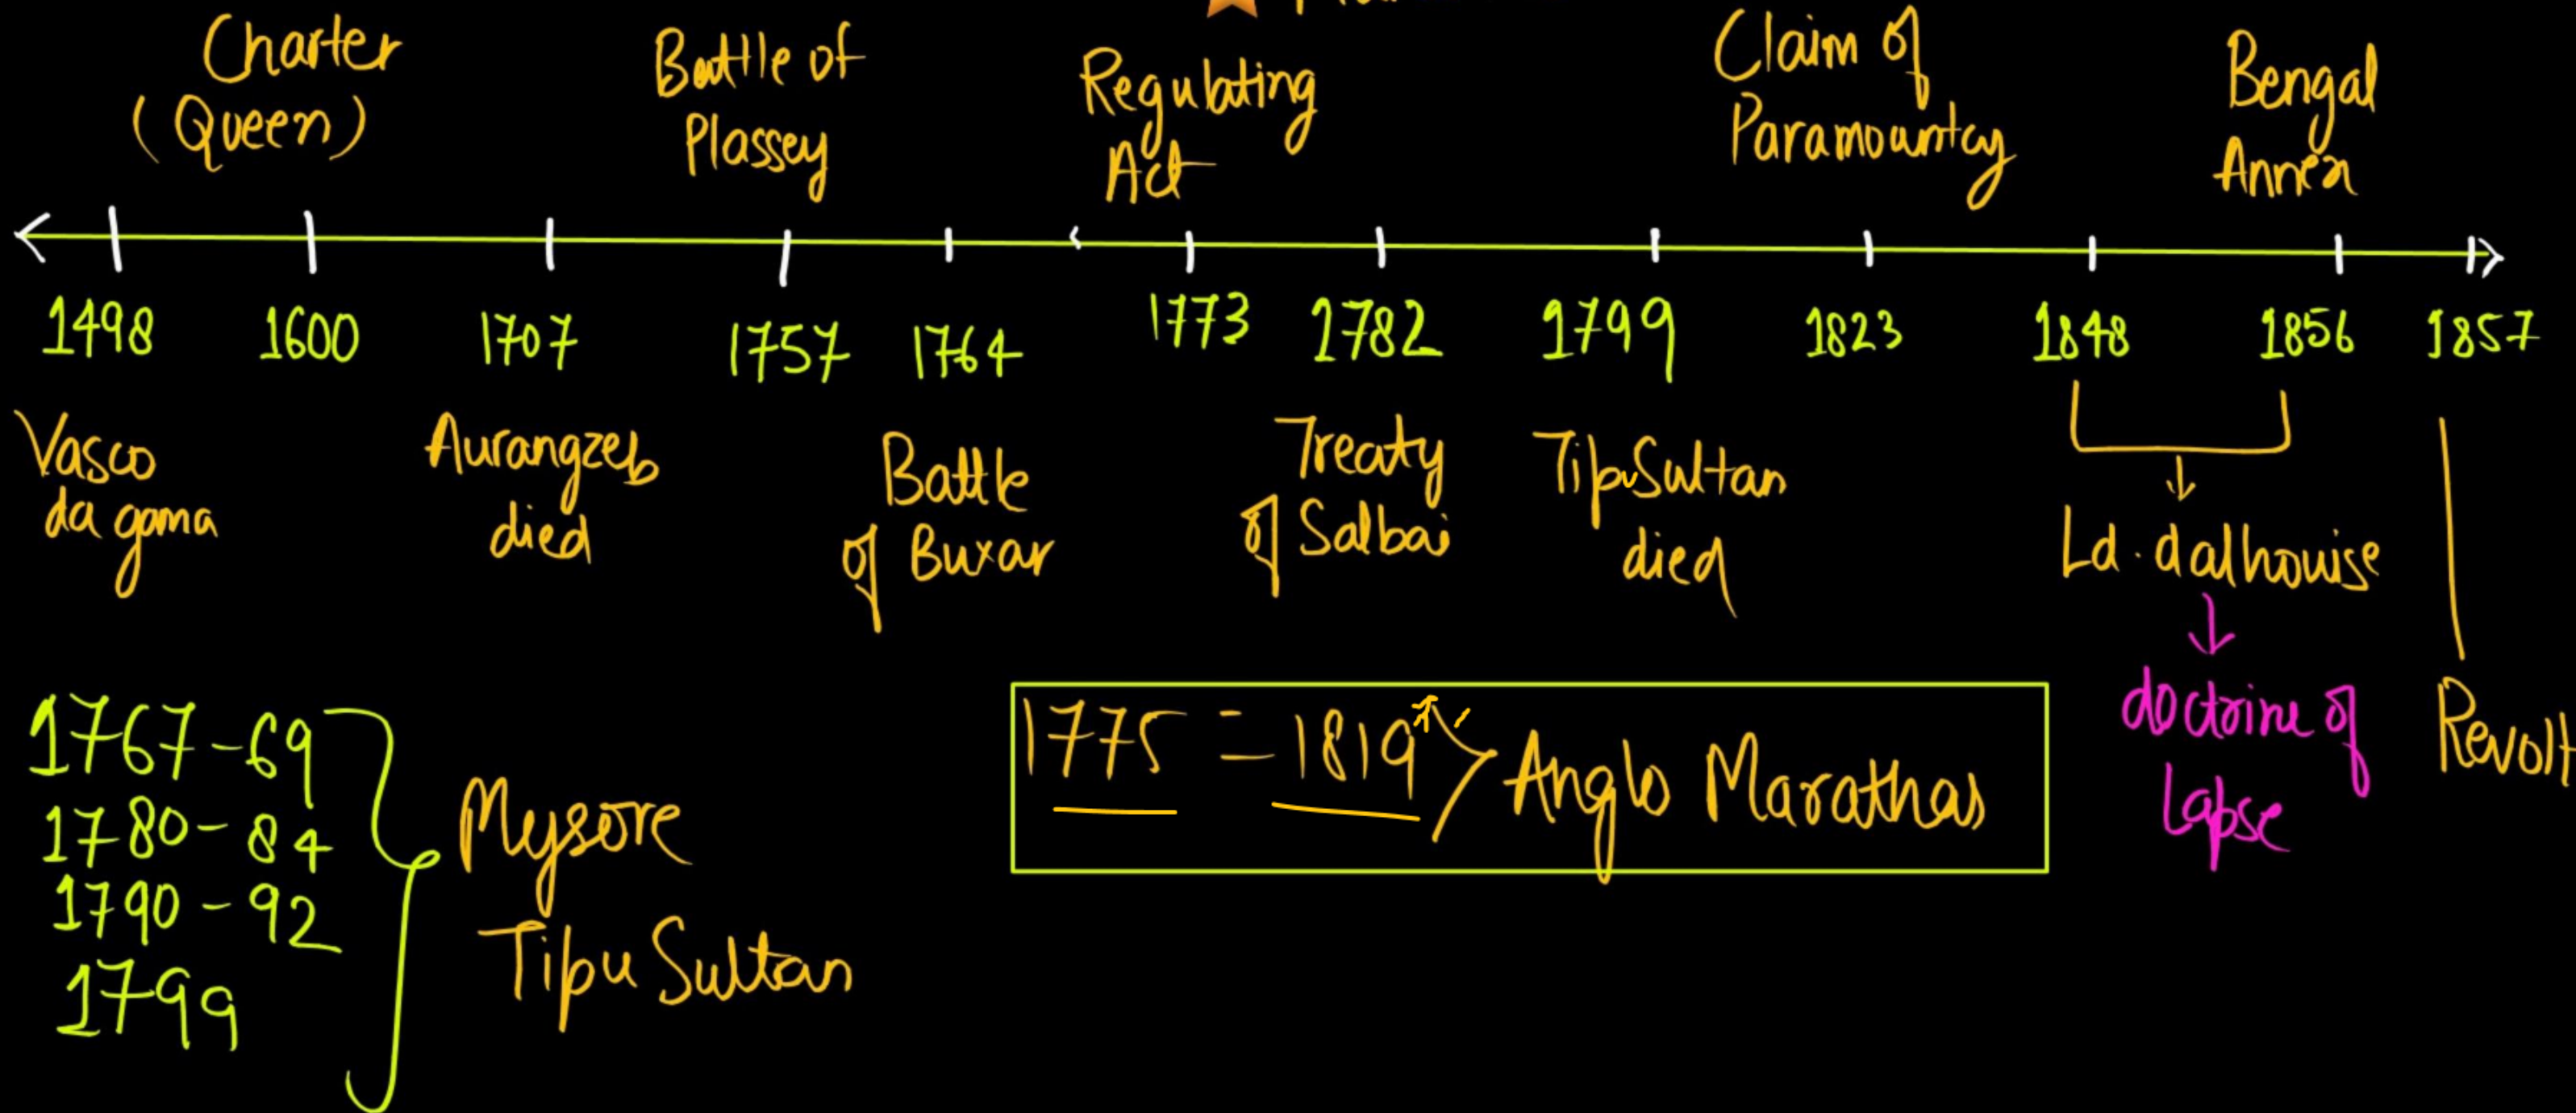 Charter
(Queen)
Battle of
Plassey
Regulating
Act
Claim of
Paramountcy
Bengal
Annex
1498 1600 1707 1757 1764 1773 1782 1799 1823 1848 1856 1857
Vasco
da gama
Aurangzeb
died
Battle
of Buxar
Treaty
of Salbai
Tipu Sultan
died
Ld. dalhouise
doctrine of
Lapse
Revolt
1767-69
1780-84
1790-92
1799
Mysore
Tipu Sultan
1775 = 1819 Anglo Marathas